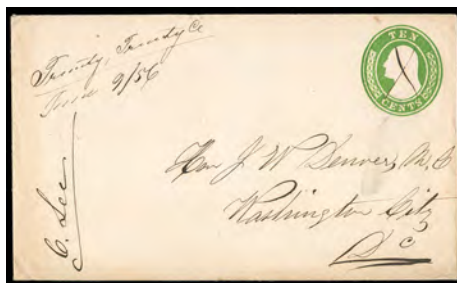 Trinity, Trinity Co
June 9/56
TEN
CENTS
C. Lee
Hon J W Denver, M. C
Washington City
D C